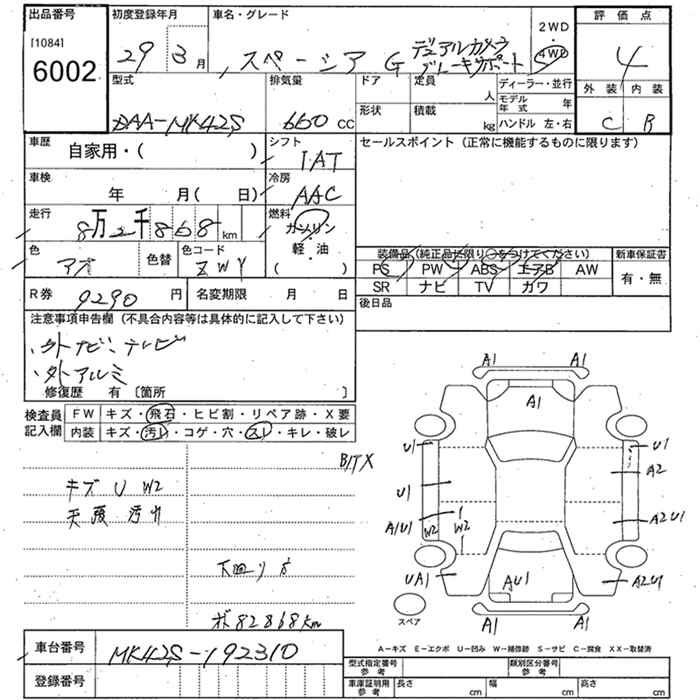 出品番号 初度登録年月 車名・グレード 2WD・4WD 評価点
[1084] 6002 29 3月 スペーシア G デュアルカメラブレーキサポート 4
外装 内装
C B
型式 排気量 ドア 定員 人 ディーラー・並行
DAA-MK42S 660cc 形状 積載 kg モデル年式 年
ハンドル 左・右
車歴 シフト セールスポイント (正常に機能するものに限ります)
自家用・( ) IAT
車検 冷房
年 月( 日) AAC
走行 燃料
8万2千868km ガソリン
軽・油
( )
色 色替 色コード
アオ ZWY
装備品(純正品に限り○をつけてください) 新車保証書
PS PW ABS エアB AW 有・無
SR ナビ TV カワ
後日品
R券 9290円 名変期限 月 日
注意事項申告欄 (不具合内容等は具体的に記入して下さい)
・外ナビ、テレビ
・外アルミ
修復歴 有 〔箇所 〕
検査員記入欄 FW キズ・飛石・ヒビ割・リペア跡・X要
内装 キズ・汚レ・コゲ・穴・スレ・キレ・破レ
B/TX
キズ U W2
天張 汚レ
下回りサ
メ 82868km
A1 A1
A1
U1 U1
A2
U1
A1U1 W2 W2 A2U1
UA1 AU1 A2U1
スペア A1 A1
A-キズ E-エクボ U-凹み W-補修跡 S-サビ C-腐食 XX-取替済
車台番号 MK42S-192310
登録番号
型式指定番号 参考 類別区分番号 参考
車庫証明用 参考 長さ cm 幅 cm 高さ cm